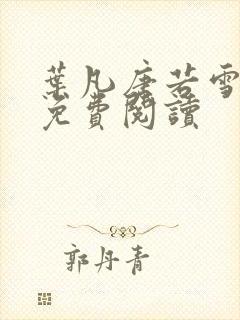 葉凡唐若雪
免費閱讀
郭丹青